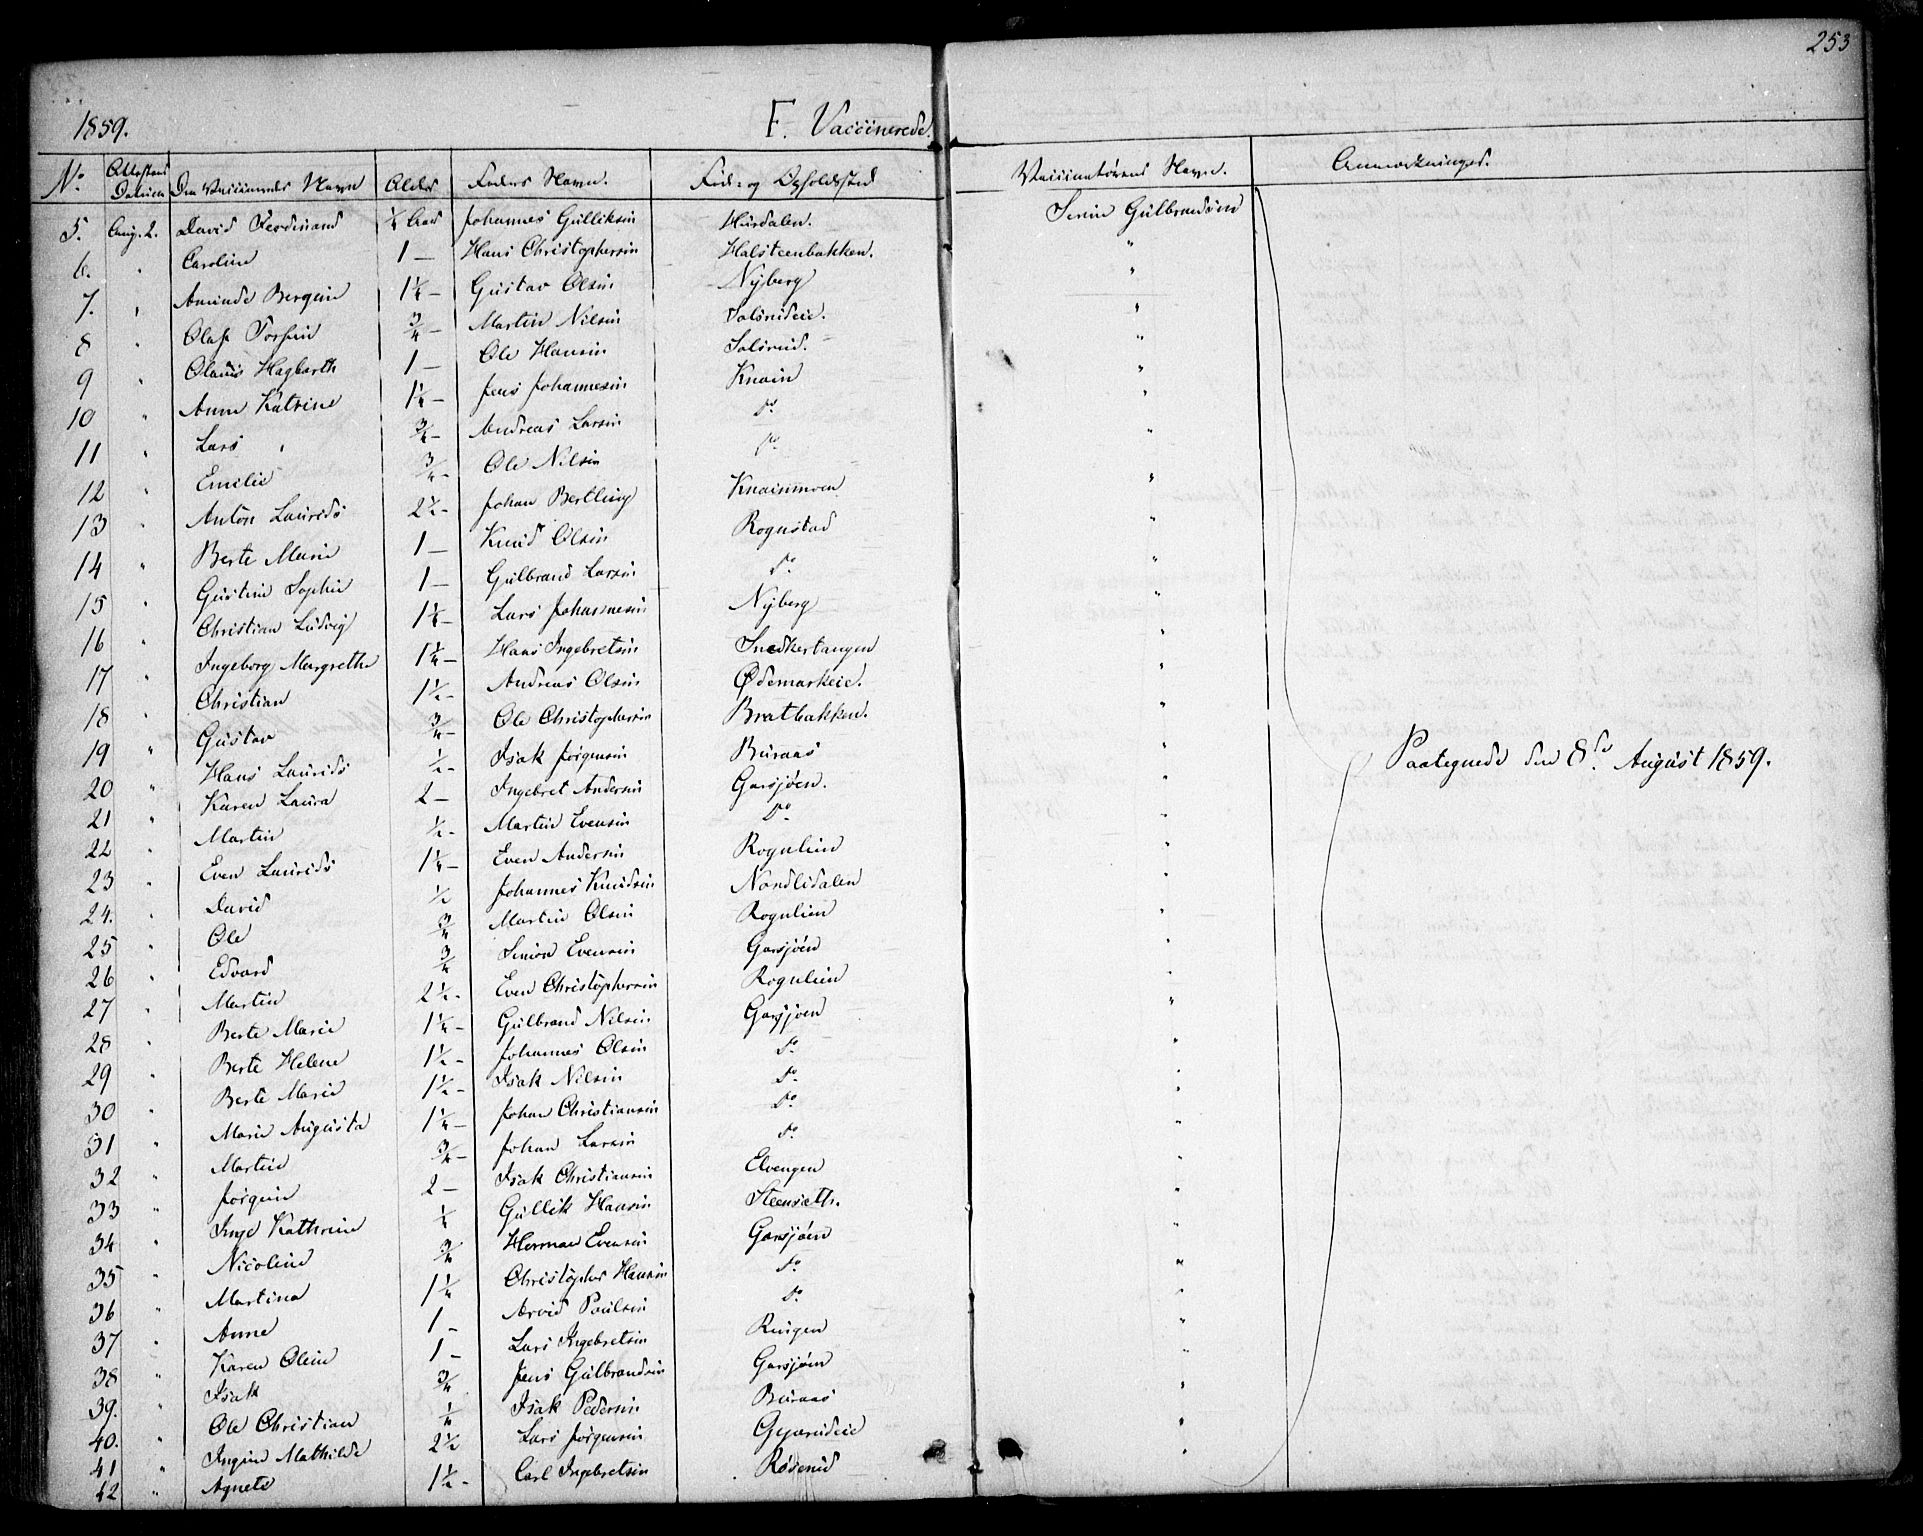 253
1859. F. Vaccinerede.
No Attestens Datum Den Vaccineredes Navn Alder Faders Navn. Føde- og Opholdssted Vaccinatørens Navn. Anmærkninger.
5. Aug. 2. David Ferdinand ¼ Aar Johannes Gulliksen Hursdalen. Gulbrandsen
6. " Caroline 1 — Hans Christophersen Halsteenbakken. "
7. " Bergine 1¼ — Gustav Olsen Nyberg "
8 " Olaf 3/4 — Martin Nilsen "
9 " Hagbarth 1 — Ole Hansen "
10 " Anne Katrine 1¼ — Jens Johannesen Knain "
11 " Lars 3/4 — Andreas Larsen do "
12 " Emilie 3/4 — Ole Nilsen do "
13 " Anton Laurids 2½ — Johan Bertling Knainmoen "
14 " Berte Marie 1 — Knud Olsen Rognstad "
15 " Gustine Sophie 1 — Gulbrand Larsen do "
16 " Christian Ludvig 1¼ — Lars Johannesen Nyberg "
17 " Ingeborg Margrethe 1¼ — Hans Ingebretsen Snedkertangen "
18 " Christian 1½ — Andreas Olsen Ødemarkeie. "
19 " Gustav 3/4 — Ole Christophersen Bratbakken. "
20 " Hans Laurids ½ — Isak Jørgensen Buraas "
21 " Karen Laura 2 — Ingebret Andersen Garsjøen. "
22 " Martin ½ — Martin Evensen do "
23 " Even Laurids 1¼ — Even Andersen Rognlien "
24. " David ½ Johannes Knudsen Nordlidalen "
25 " Ole 3/4 Martin Olsen Rognlien "
26 " Edvard 3/4 Simon Evensen Garsjøen "
27 " Martin 2½ — Even Christophersen Rognlien "
28 " Berte Marie 1¼ — Gulbrand Nilsen Garsjøen "
29 " Berte Helene 1½ — Johannes Olsen do "
30 " Berte Marie 1½ — Isak Nilsen do "
31 " Marie Augusta 1¼ — Johan Christiansen do "
32 " Martin 3/4 — Johan Larsen do "
33 " Jørgine 2 — Isak Christiansen Elvengen "
34 " Inge Kathrine ¼ Gullik Hansen Steensæth. "
35 " Nicoline 3/4 Herman Evensen Garsjøen "
36 " Martina 1¼ Christopher Hansen do "
37 " Anne 1 — Arvid Paulsen do "
38 " Karen Oline 1 — Lars Ingebretsen "
39. " Isak 3/4 Jens Gulbrandsen Garsjøen "
40. " Ole Christian ¼ Isak Pedersen Buraas "
41 " Mathilde 2½ Lars Jørgensen "
42 " Agnete 1½ — Carl Ingebretsen "
Paategnede den 8de August 1859.